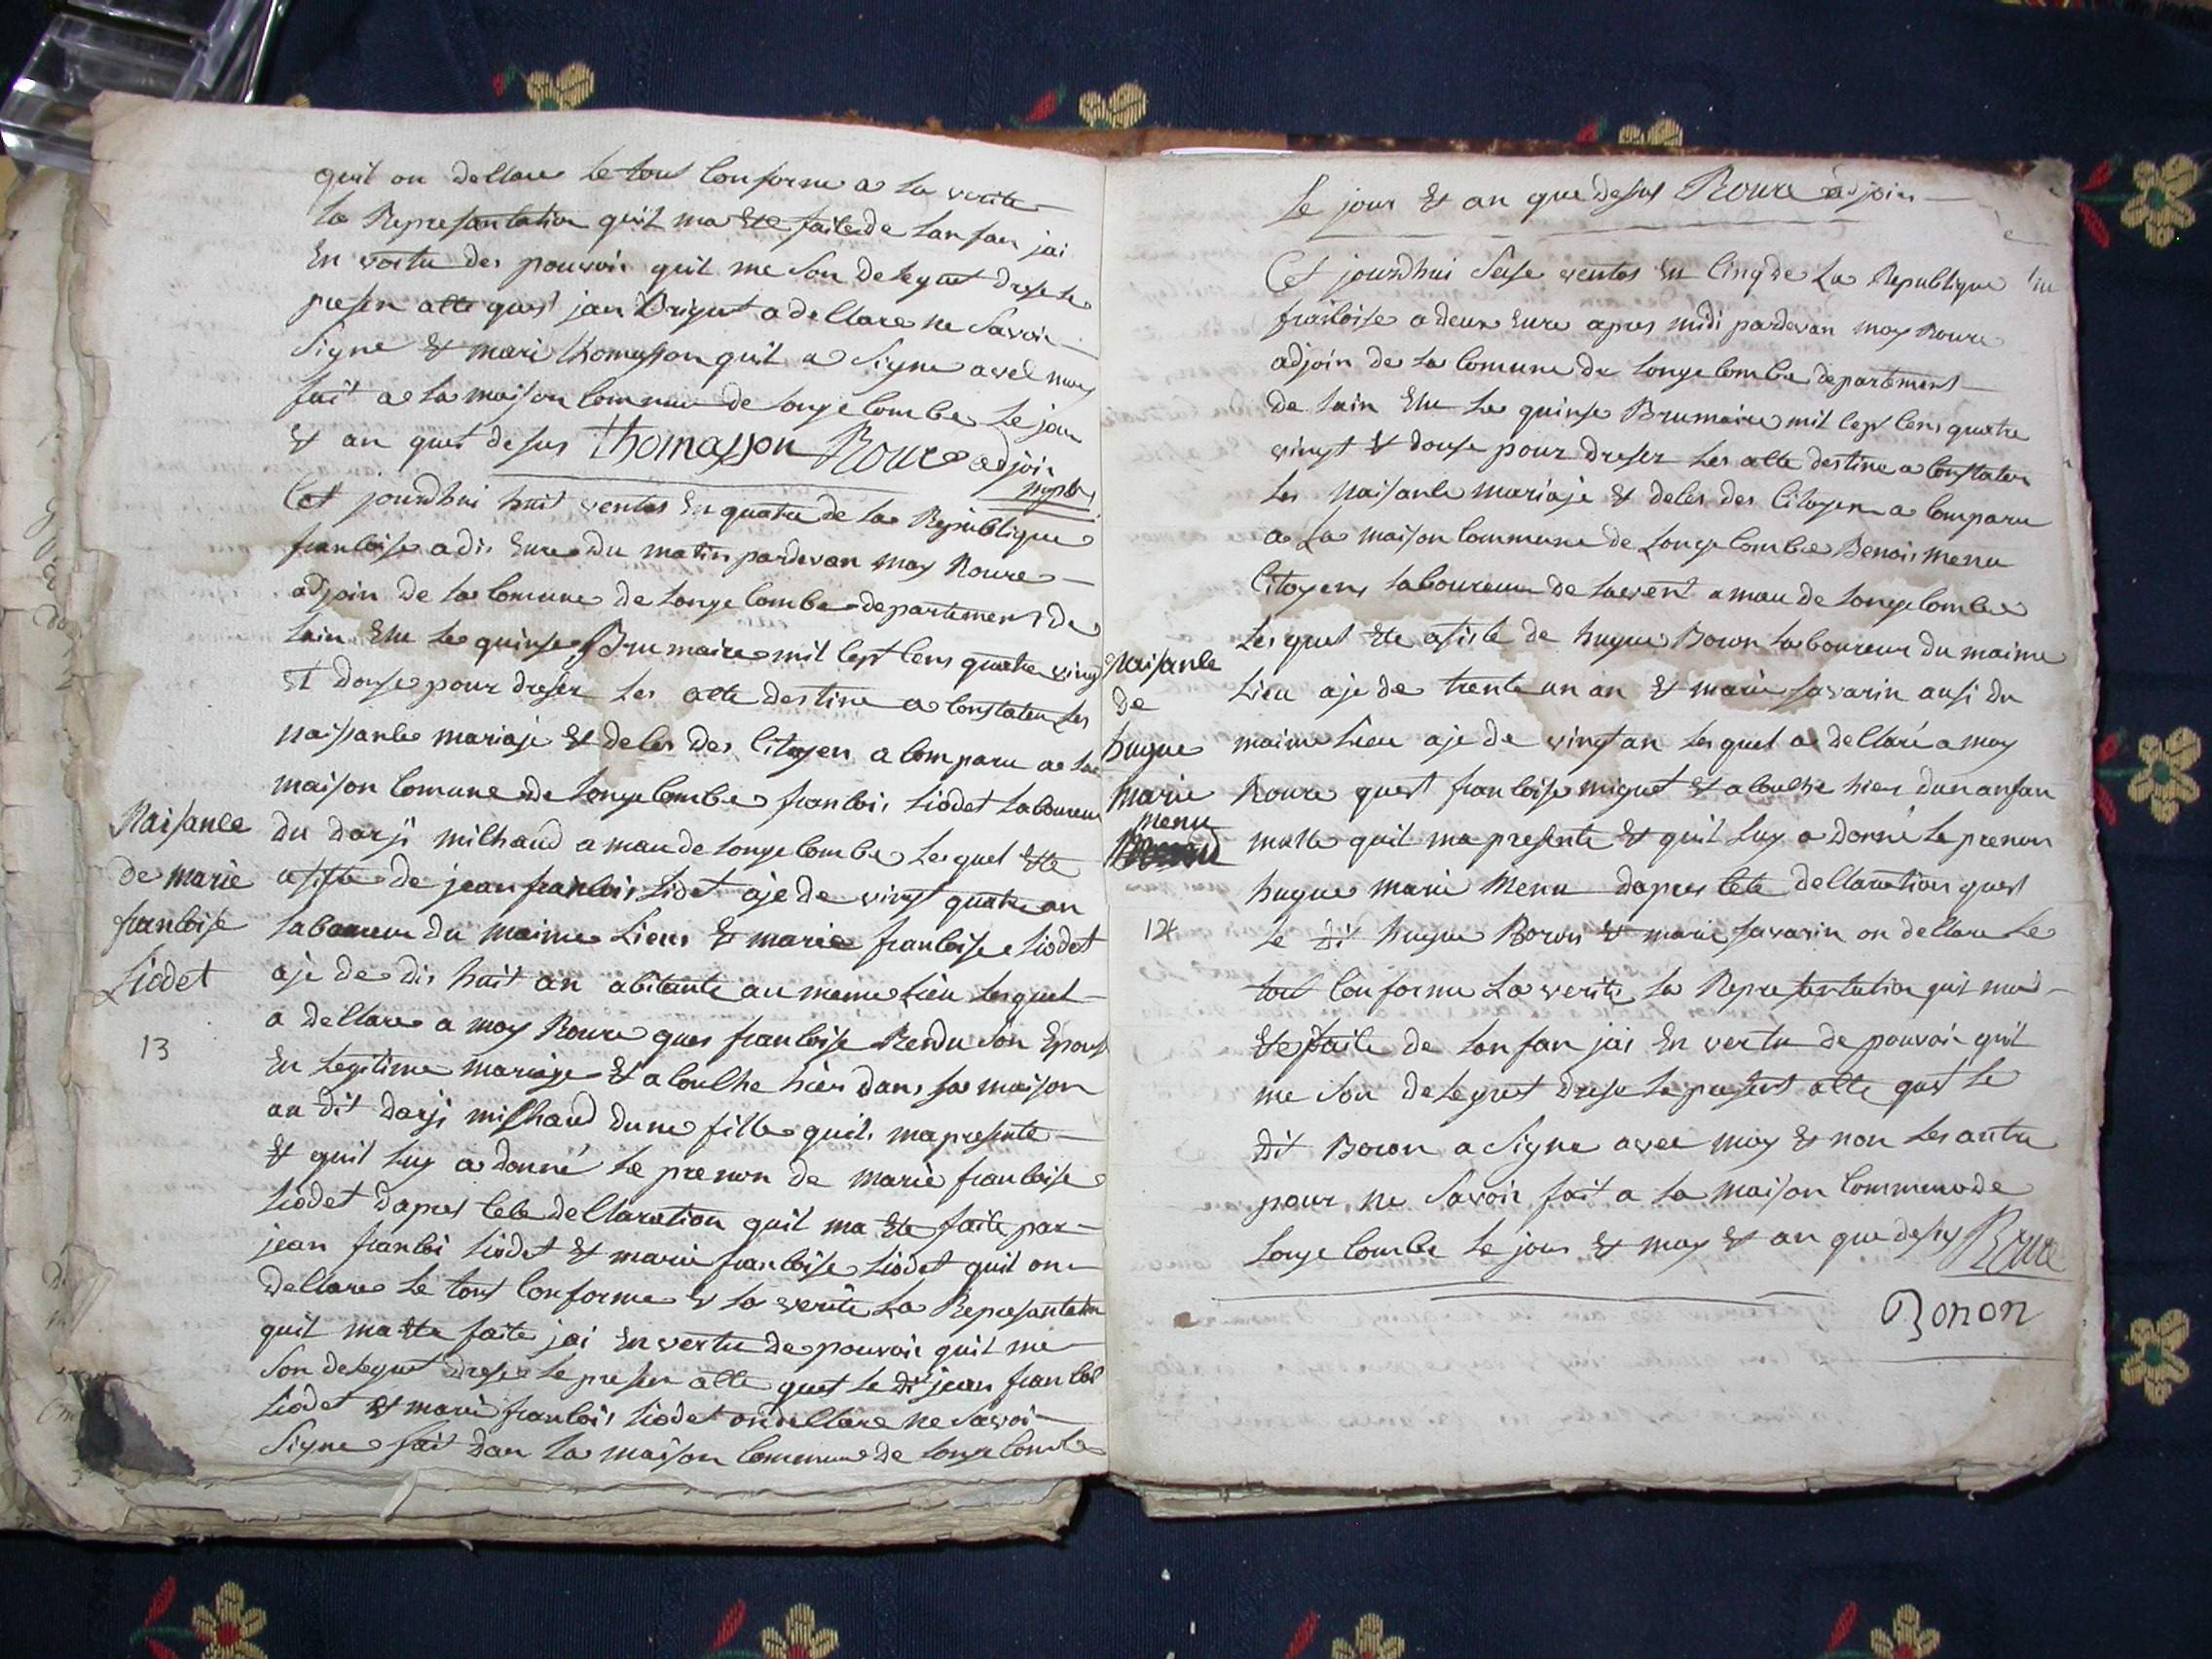 quil on dellare le tout Conforme a la verite
la Representation quil ma Ete faite de lanfan jai
En vertu des pouvoir quil me Son deleguet drese le
presen atte quest jan Briguet a dellare ne Savoir
Signe & mari thomasson quil a Signe avec moy
fait a la maison Commune de longecombe le jour
& an quet desus thomasson Roure adjoin
Cet jourdhui huit ventos En quatre de la Republique
francoise a dis Eure du matin pardevan moy Roure
adjoin de la Comune de longe Combe departement de
lain Elu le quinse Brumaire mil cept cens quatre ving
Et douse pour dreser les atte destine a Constater les
naissance mariaje & deces des Citoyen a Comparu a la
maison Comune de longecombe francois liodet laboureur
Naisance
de marie
francoise
Liodet
13
du darji milhaud amau de longe Combe lesquel Ete
asiste de jean francois liodet aje de vingt quatre an
laboureur du maime Lieux & marie francoise liodet
aje de dis huit an abitante au meme lieu lesquel
a dellare a moy Roure ques francoise Rendu Son Epouse
En legitime mariage Et acoulhe hier dans sa maison
au dit darji milhaud dune fille quil ma presente
& quil luy a donné le prenon de marie francoise
liodet dapres cete dellaration quil ma Ete faite par
jean francoi liodet & marie francoise liodet quil on
dellare le tout Conforme & la verite La Representation
quil ma Ete faite jai En vertu de pouvoir quil me
Son deleguet drese le presen atte quet le dit jean francois
liodet & marie francois liodet on dellare ne Savoir
Signe fait dan la maison Commune de longe Combe
Le jour & an que desus Roure adjoin
Cet jourdhui Seise ventos En Cinq de La Republique
francoise a deux Eure apres midi pardevan moy Roure
adjoin de la Comune de longe Combe departement
de lain Elu le quinse Brumaire mil cept cens quatre
vingt & douse pour dreser les atte destine a Constater
les naisance mariaje & deces des Citoyen a Comparu
a La maison Commune de Longe Combe Benois menu
Citoyens laboureur de lavent amau de longecombe
Lesquel Ete asiste de hugue Boron laboureur du maime
Naisance
de
hugue
marie
menu
12
Lieu aje de trente un an & marie savarin ausi du
maime lieu aje de vingt an lesquel a dellaré a moy
Roure quest francoise miguet Et acoulhe hier dun anfan
malle quil ma presente & quil luy a donné le prenon
hugue marie Menu dapres cete dellaration quest
Le dit hugue Boron & marie savarin on dellare Le
tout Conforme La verite la Representation quil mad
Ete faite de lonfan jai En vertu de pouvoir quil
me Son deleguet drese le present atte quet le
dit Boron a Signe avec moy & non les autre
pour ne Savoir fait a la maison Commune de
Longe Combe le jour & moy & an que desus Roure
Boron